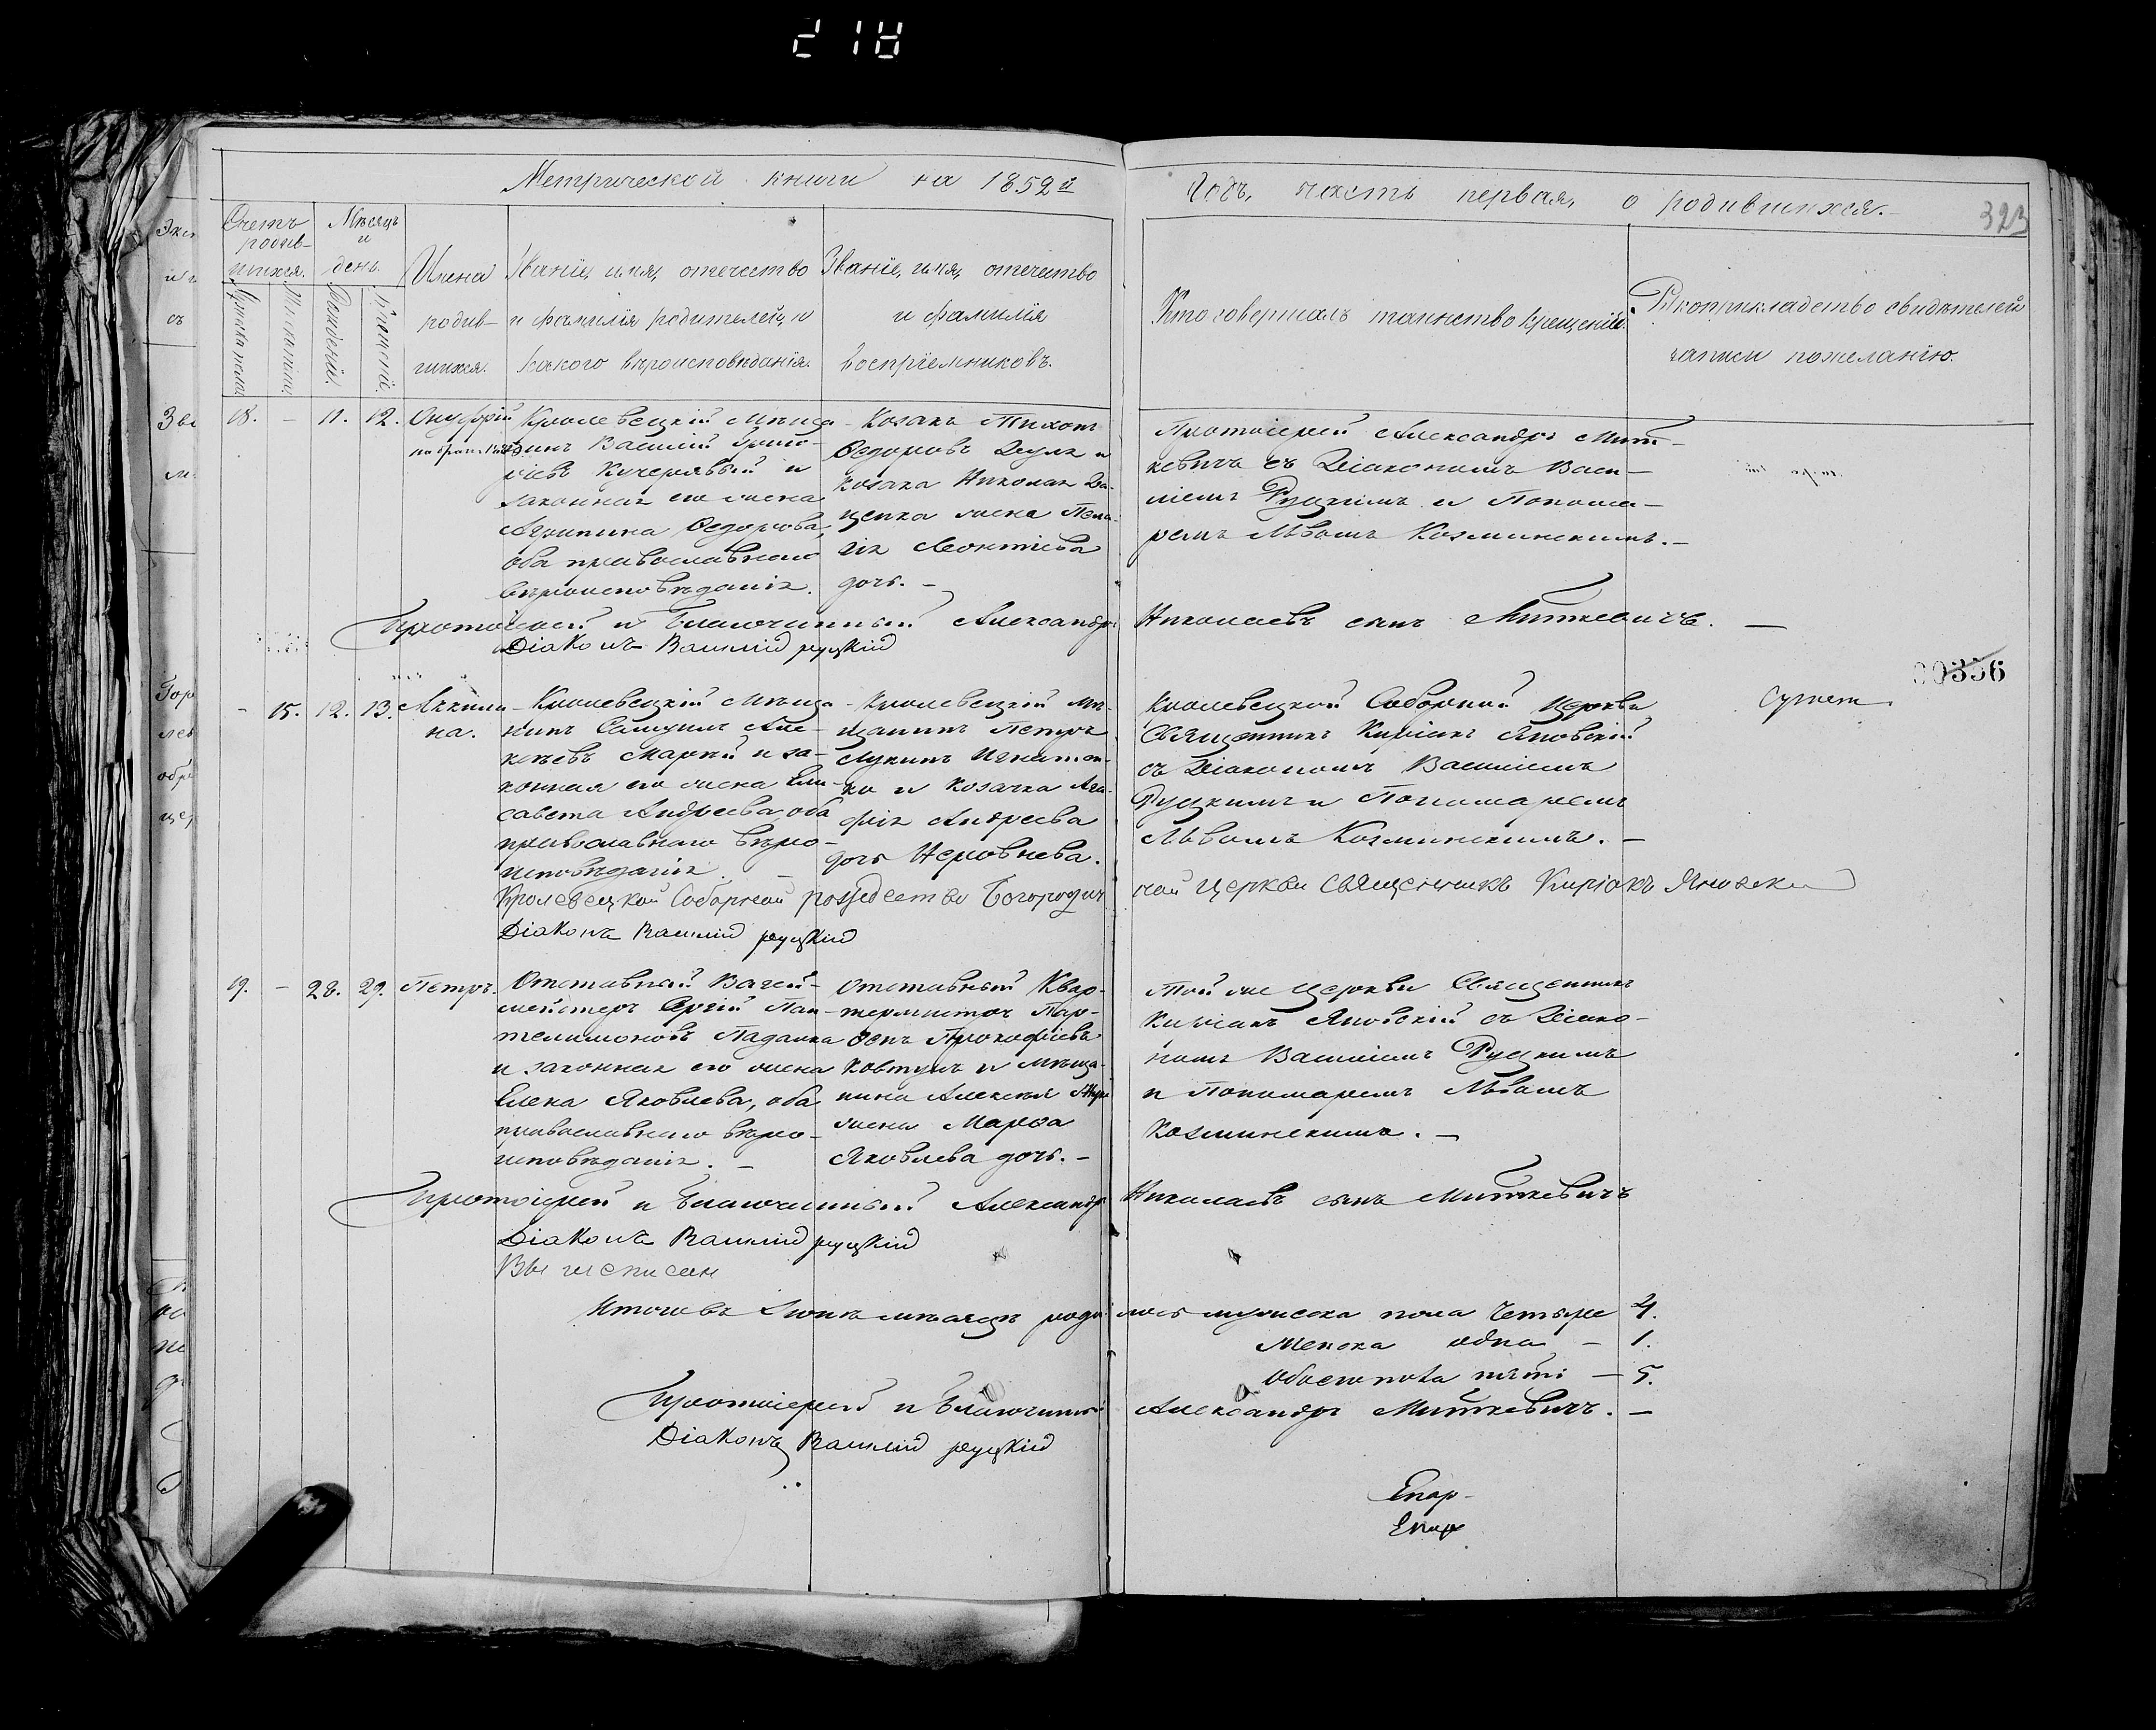 218
Метрической книги на 1852й
Годъ, часть первая, о родившихся.
323
Счетъ родив-
шихся.
Мѣсяцъ
и
день.
Мужеска пола
Женска
Рожденiй.
Крещенiй.
Имена
родив-
шихся.
Званiе, имя, отечество
и фамилiя родителей, и
какого вѣроисповѣданiя.
Званiе, имя, отечество
и фамилiя
воспрiемниковъ.
Кто совершалъ таинство крещенiя.
Рукоприкладство свидѣтелей
записи по желанiю.
18. – 11. 12. Онуфрiй
Кролевецкiй Мѣща-
нинъ Василiй Григо-
рiевъ Кучерявый и
законная его жена
Агрипина Федорова,
оба православнаго
вѣроисповѣданiя.
Козакъ Тихонъ
Федоровъ Дуля и
козака Николая
жена Пела-
гiя Леонтiева
дочь. –
Протоiерей Александръ Мит-
кевичъ съ Дiакономъ Васи-
лiемъ Руцкимъ и Понома-
ремъ Львомъ Козминскимъ. –
Протоiерей и Благочинный Александръ Николаевъ сынъ Миткевичъ. –
Дiаконъ Василiй руцкiй
00356
– 15. 12. 13. Акили-
на.
Кролевецкiй Мѣща-
нинъ Самуилъ Але-
ксѣевъ и за-
конная его жена Ели-
савета Андреева, оба
православнаго вѣро-
исповѣданiя. –
Кролевецкiй Мѣ-
щанинъ Петръ
Лукинъ Игнатен-
ко и козачка Ага-
фiя Андреева
дочь
Кролевецкой Соборной Церкви
Священникъ Кирiакъ Яновскiй
съ Дiакономъ Василiемъ
Руцкимъ и Пономаремъ
Львомъ Козминскимъ. –
Кролевецкой Соборной рождество Богородич ной церкви Священникъ Кирiакъ Яновскiй
Дiаконъ Василiй руцкiй
19. – 28. 29. Петръ.
Отставный Вахт-
мейстеръ Сергiй Пан-
телимоновъ Падалка
и законная его жена
Елена Яковлева, оба
православнаго вѣро-
исповѣданiя. –
Отставный Квар-
термистръ Пар-
фенъ Прокофiевъ
Ковтунъ и мѣща-
нина Алексея
жена Марфа
Яковлева дочь. –
Той же церкви Священникъ
Кирiакъ Яновскiй съ Дiако-
номъ Василiемъ Руцкимъ
и Пономаремъ Львомъ
Козминскимъ. –
Протоiерей и Благочинный Александръ Николаевъ сынъ Миткевичъ
Дiаконъ Василiй руцкiй
Итого въ Iюнѣ мѣсяцѣ роди лось мужеска пола четыре 4.
Женска одна – 1.
Обоего пола пять – 5.
Протоiерей и Благочинный Александръ Миткевичъ. –
Дiаконъ Василiй руцкiй
Епар-
Епар